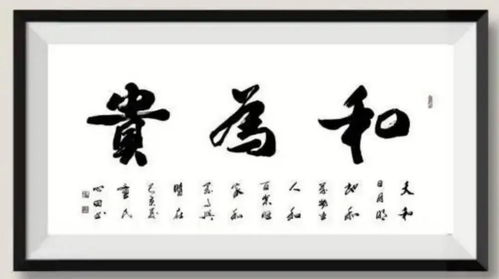 和為貴
天和
日月明
地和
萬物生
人和
百業旺
家和
萬事興
時在
己亥